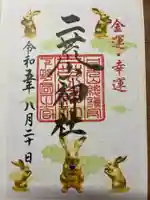 金運・幸運
二荒山神社
令和五年八月二十日